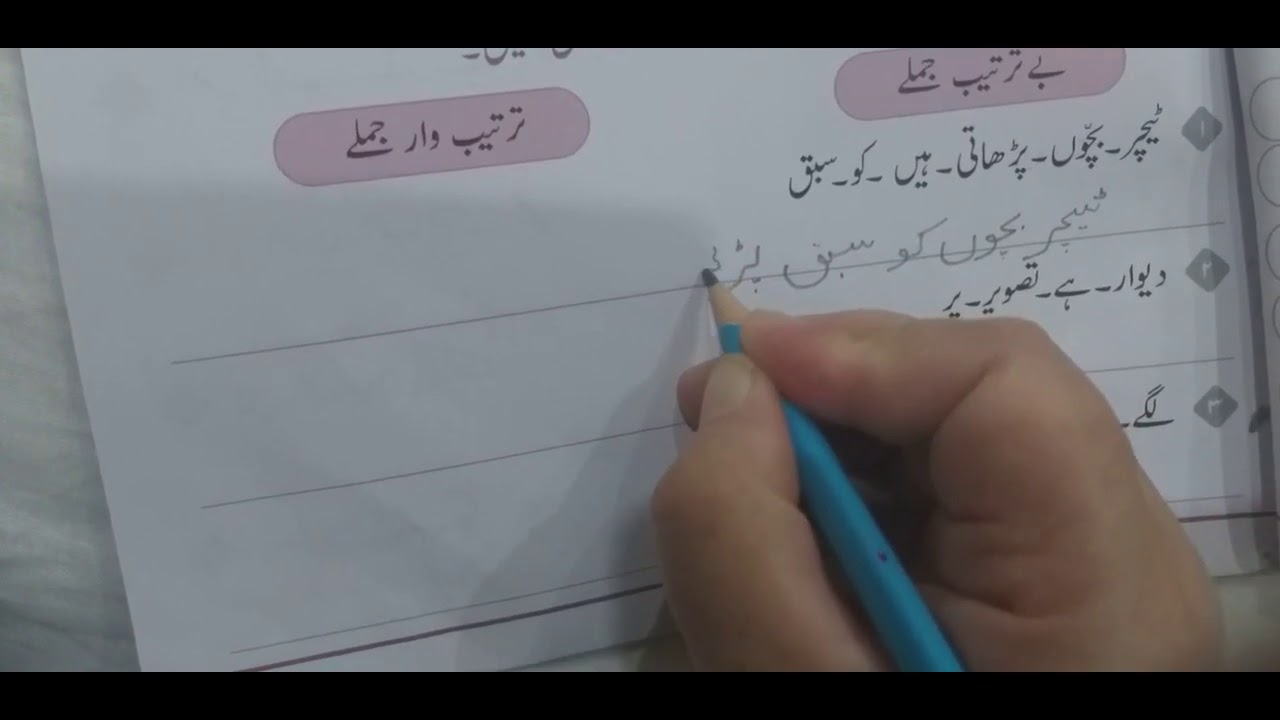 بے ترتیب جملے
ترتیب وار جملے
۱ ٹیچر۔بچّوں۔پڑھاتی۔ہیں۔کو۔سبق
ٹیچر بچوں کو سبق پڑ
۲ دیوار۔ہے۔تصویر۔پر
۳ لگے۔